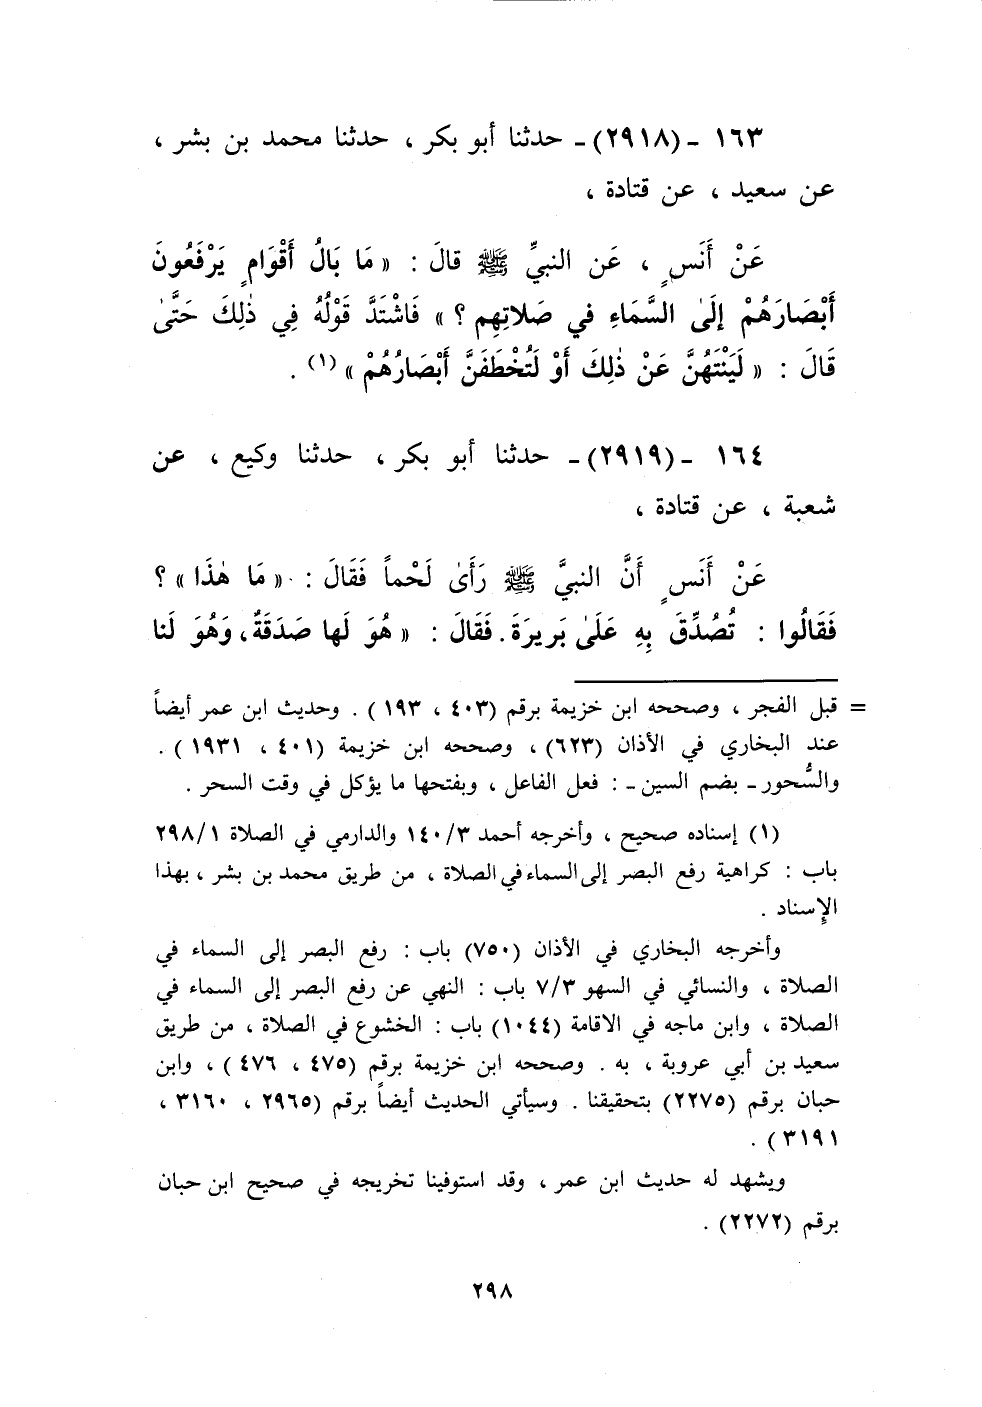 ١٦٣ - (٢٩١٨) - حدثنا أبو بكر ، حدثنا محمد بن بشر ،
عن سعيد ، عن قتادة ،
عَنْ أَنَسٍ ، عَن النبيِّ ﷺ قالَ : « مَا بَالُ أَقْوَامٍ يَرْفَعُونَ
أَبْصَارَهُمْ إِلَىٰ السَّمَاءِ في صَلاتِهِم ؟ » فَاشْتَدَّ قَوْلُهُ فِي ذٰلِكَ حَتَّىٰ
قَالَ : « لَيَنْتَهُنَّ عَنْ ذٰلِكَ أَوْ لَتُخْطَفَنَّ أَبْصَارُهُمْ » (١) .
١٦٤ - (٢٩١٩) - حدثنا أبو بكر ، حدثنا وكيع ، عن
شعبة ، عن قتادة ،
عَنْ أَنَسٍ أَنَّ النبيَّ ﷺ رَأَىٰ لَحْماً فَقَالَ : « مَا هٰذَا » ؟
فَقَالُوا : تُصُدِّقَ بِهِ عَلَىٰ بَرِيرَةَ . فَقَالَ : « هُوَ لَها صَدَقَةٌ ، وَهُوَ لَنا
= قبل الفجر ، وصححه ابن خزيمة برقم (٤٠٣ ، ١٩٣ ) . وحديث ابن عمر أيضاً
عند البخاري في الأذان (٦٢٣) ، وصححه ابن خزيمة (٤٠١ ، ١٩٣١ ) .
والسُّحور - بضم السين - : فعل الفاعل ، وبفتحها ما يؤكل في وقت السحر .
(١) إسناده صحيح ، وأخرجه أحمد ١٤٠/٣ والدارمي في الصلاة ٢٩٨/١
باب : كراهية رفع البصر إلى السماء في الصلاة ، من طريق محمد بن بشر ، بهذا
الإسناد .
وأخرجه البخاري في الأذان (٧٥٠) باب : رفع البصر إلى السماء في
الصلاة ، والنسائي في السهو ٧/٣ باب : النهي عن رفع البصر إلى السماء في
الصلاة ، وابن ماجه في الاقامة (١٠٤٤) باب : الخشوع في الصلاة ، من طريق
سعيد بن أبي عروبة ، به . وصححه ابن خزيمة برقم (٤٧٥ ، ٤٧٦ ) ، وابن
حبان برقم (٢٢٧٥) بتحقيقنا . وسيأتي الحديث أيضاً برقم (٢٩٦٥ ، ٣١٦٠ ،
٣١٩١ ) .
ويشهد له حديث ابن عمر ، وقد استوفينا تخريجه في صحيح ابن حبان
برقم (٢٢٧٢) .
٢٩٨